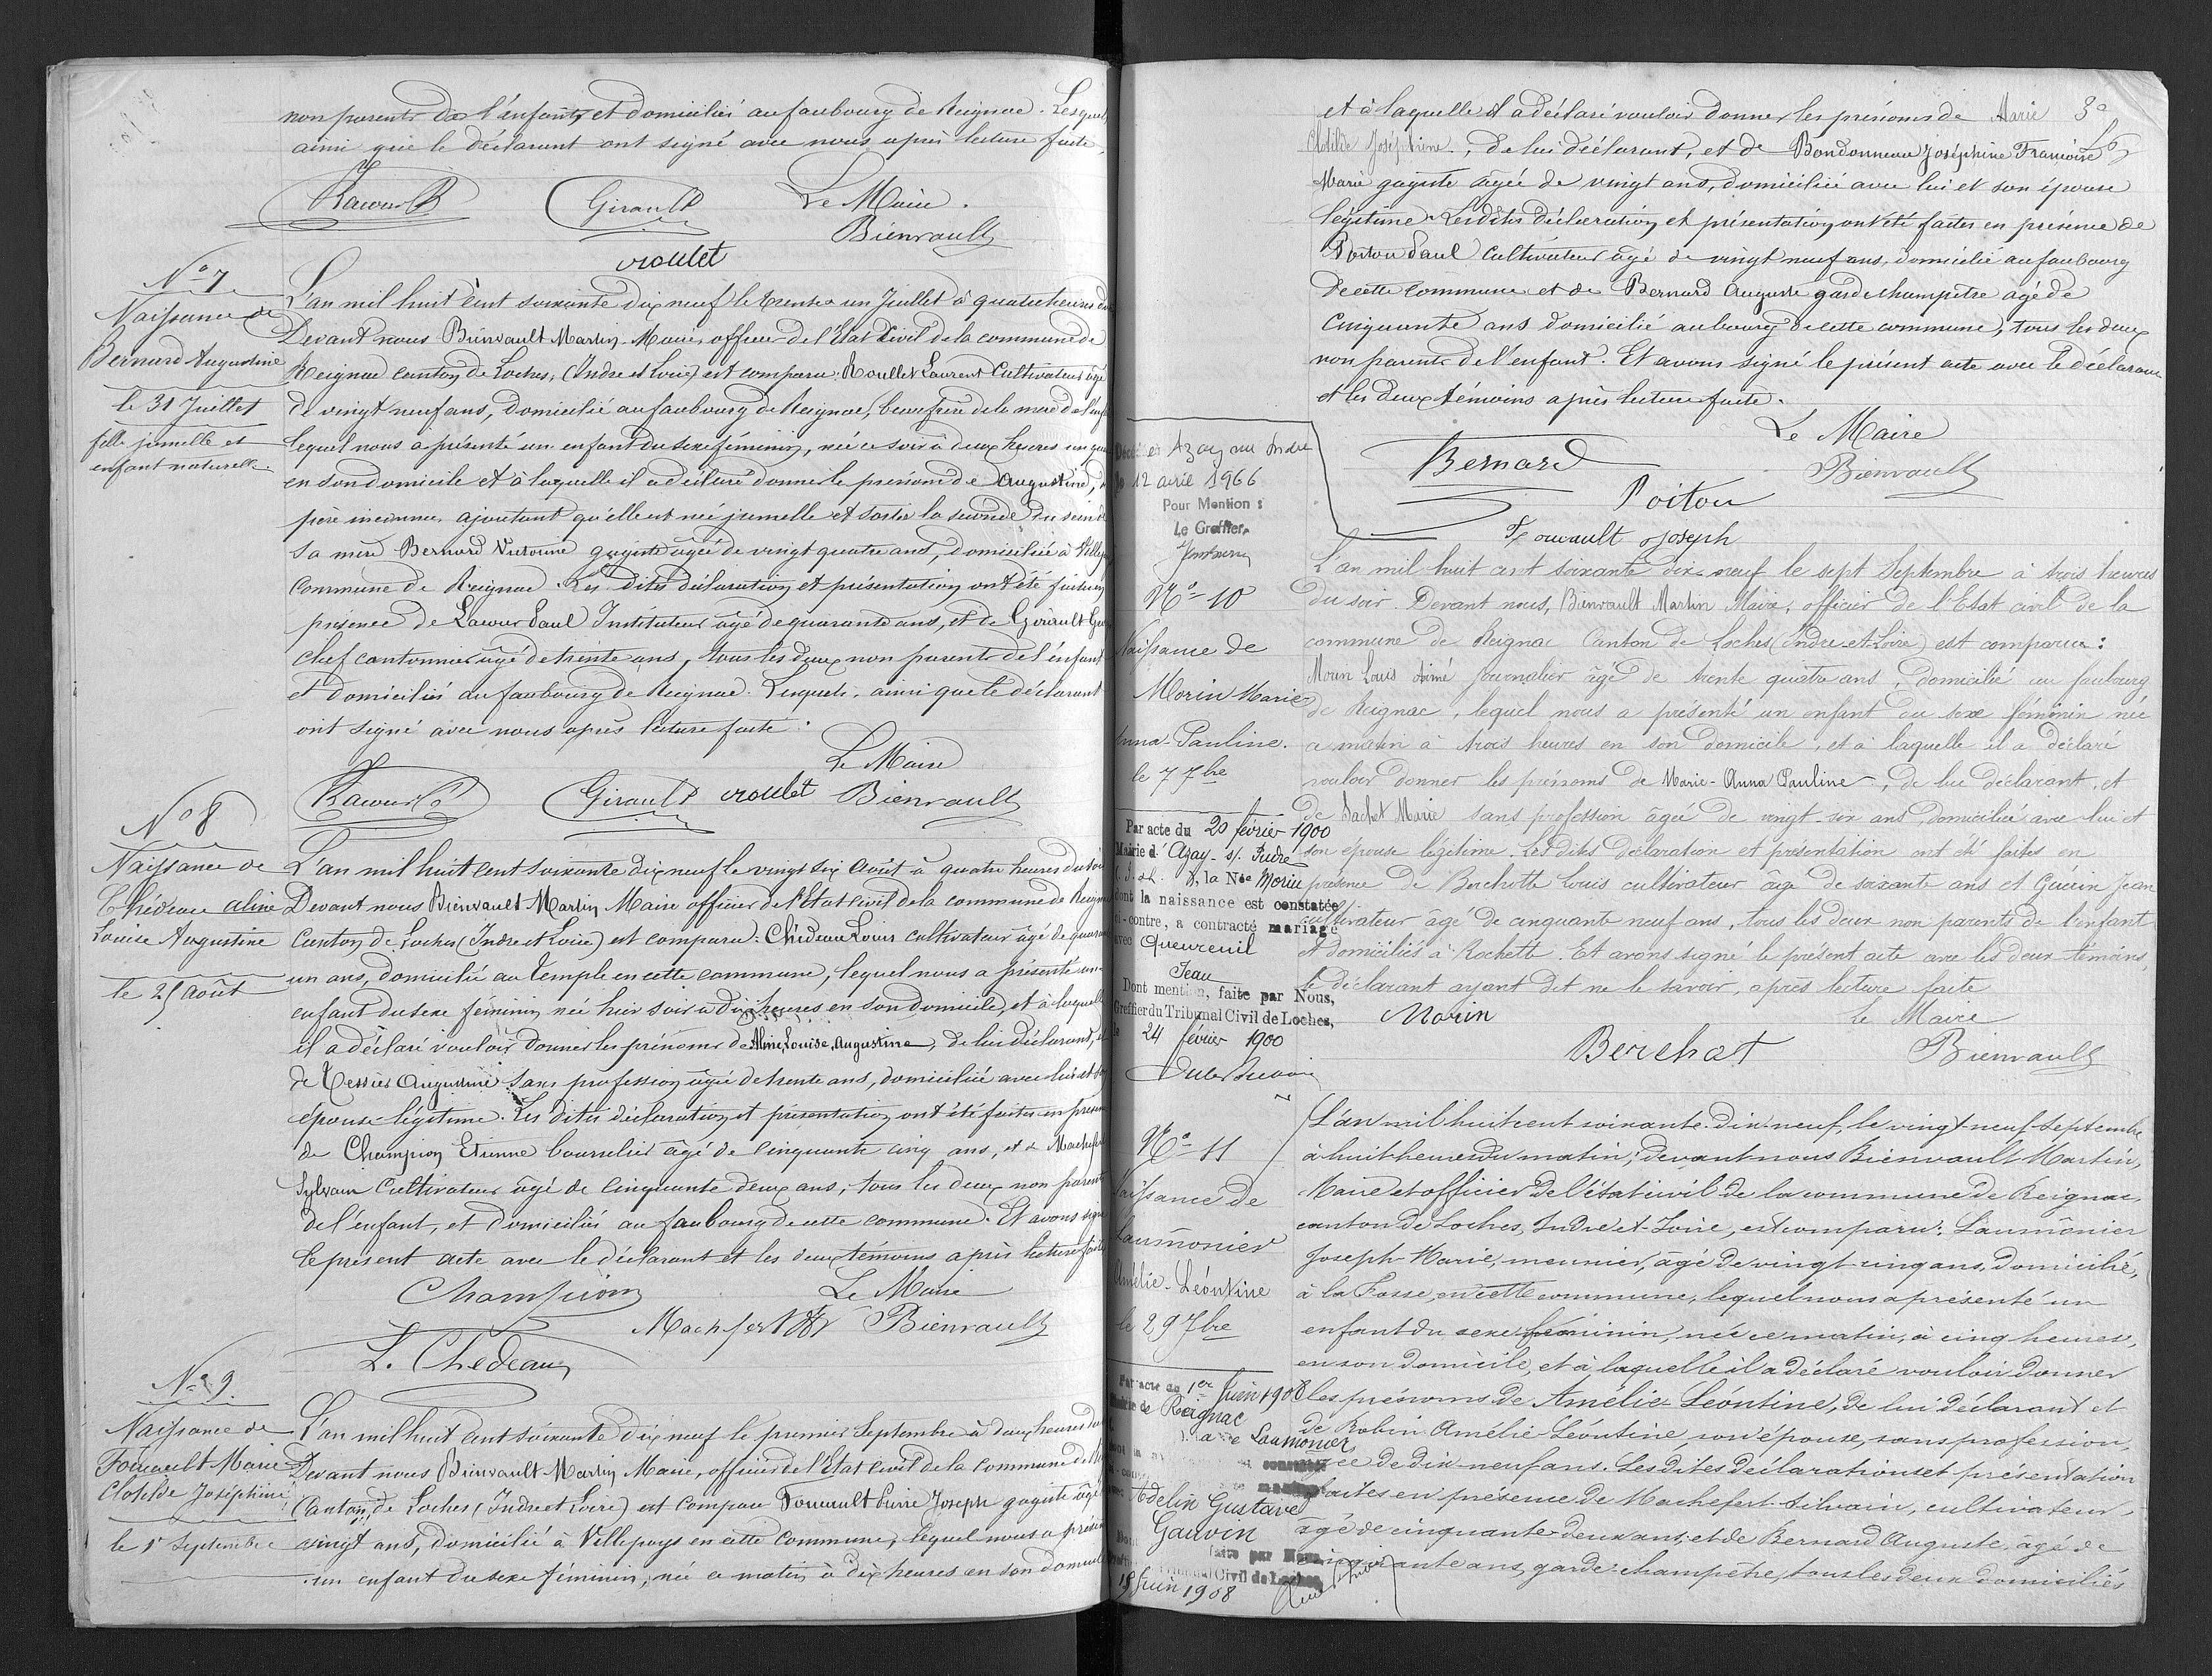 non parents de l'enfant, et domiciliés au faubourg de Reignac. Lesquels
ainsi que le déclarant ont signé avec nous après lecture faite.
Girault
Le Maire.
Bienvault
roulet
N° 7
Naissance de
Bernard Augustine
le 31 Juillet
fille jumelle et
enfant naturelle
L'an mil huit cent soixante dix neuf le trente un Juillet à quatre heures du
Devant nous Bienvault Martin Maire, officier de l'Etat Civil de la commune de
Reignac canton de Loches, (Indre et Loire) est comparu: Roullet Laurent Cultivateur âgé
de vingt neuf ans, domicilié au faubourg de Reignac, beau frère de la mère de l'enf
lequel nous a présenté un enfant du sexe féminin, née ce soir à deux heures un qua
en son domicile et à laquelle il a déclaré donner le prénom de Augustine, de
père inconnu, ajoutant qu'elle est née jumelle et sortie la seconde du sein de
sa mère Bernard Victorine gagiste âgée de vingt quatre ans, domiciliée à Villep
commune de Reignac. Les dites déclaration et présentation ont été faites en
présence de Lacour Paul Instituteur âgé de quarante ans, et de Girault
chef cantonnier âgé de trente ans, tous les deux non parents de l'enfant
et domiciliés au faubourg de Reignac. Lesquels, ainsi que le déclarant
ont signé avec nous après lecture faite:
Le Maire
Girault roulet Bienvault
N° 8
Naissance de
Chédeau Aline
Louise Augustine
le 25 août
L'an mil huit cent soixante dix neuf le vingt six août à quatre heures du soir
Devant nous Bienvault Martin Maire officier de l'Etat civil de la commune de Reigna
Canton de Loches (Indre et Loire) est comparu: Chédeau Louis cultivateur âgé de quaran
un ans, domicilié au Temple en cette commune, lequel nous a présenté un
enfant du sexe féminin née hier soir à dix heures en son domicile, et à laquelle
il a déclaré vouloir donner les prénoms de Aline, Louise, Augustine, de lui déclarant, et
de Tessier Augustine sans profession âgée de trente ans, domiciliée avec lui et son
épouse légitime. Les dites déclaration et présentation ont été faites en présen
de Champion Etienne bourrelier âgé de cinquante cinq ans, et de Machefer
Sylvain Cultivateur âgé de cinquante deux ans, tous les deux non parents
de l'enfant, et domiciliés au faubourg de cette commune. Et avons signé
le présent acte avec le déclarant et les deux témoins après lecture faite
Champion
Le Maire
Machefert Bienvault
L. Chedeau
N° 9
Naissance de
Foucault Marie
Clotilde Joséphine
le 1er Septembre
L'an mil huit cent soixante dix neuf le premier Septembre à deux heures du
Devant nous Bienvault Martin Maire, officier de l'Etat Civil de la commune de
Canton de Loches (Indre et Loire) est comparu Foucault Pierre Joseph gagiste âgé
vingt ans, domicilié à Villepays en cette commune, lequel nous a présen
un enfant du sexe féminin, née ce matin à dix heures en son domicile
et à laquelle il a déclaré vouloir donner les prénoms de Marie
Clotilde Joséphine, de lui déclarant, et de Bondonneau Joséphine Françoise
Marie gagiste âgée de vingt ans, domiciliée avec lui et son épouse
légitime. Les dites déclaration et présentation ont été faites en présence de
Poitou Paul Cultivateur âgé de vingt neuf ans, domicilié au faubourg
de cette commune et de Bernard Auguste garde champêtre âgé de
cinquante ans domicilié au bourg de cette commune, tous les deux
non parents de l'enfant. Et avons signé le présent acte avec le déclarant
et les deux témoins après lecture faite.
Le Maire
Bernard
Bienvault
Poitou
Foucault Joseph
Décédée à Azay sur Indre
le 12 avril 1966
Pour Mention :
Le Greffier.
N° 10
Naissance de
Morin Marie
Anna-Pauline.
le 7 7bre
L'an mil huit cent soixante dix neuf le sept Septembre à trois heures
du soir. Devant nous, Bienvault Martin Maire, officier de l'Etat civil de la
commune de Reignac Canton de Loches (Indre-et-Loire) est comparu:
Morin Louis Aimé journalier âgé de trente quatre ans, domicilié au faubourg
de Reignac, lequel nous a présenté un enfant du sexe féminin née
ce matin à trois heures en son domicile, et à laquelle il a déclaré
vouloir donner les prénoms de Marie-Anna Pauline, de lui déclarant, et
de Sachet Marie sans profession âgée de vingt-six ans domiciliée avec lui et
son épouse légitime. Les dites déclaration et présentation ont été faites en
présence de Berchotte Louis cultivateur âgé de soixante ans et Guérin Jean
cultivateur âgé de cinquante neuf ans, tous les deux non parents de l'enfant
et domiciliés à Rochette. Et avons signé le présent acte avec les deux témoins,
le déclarant ayant dit ne le savoir, après lecture faite
Morin
Le Maire
Berchot
Bienvault
Par acte du 20 février 1900
Mairie d'Azay-s/-Indre
(I.&L.), la Née Morin
dont la naissance est constatée
ci-contre, a contracté mariage
avec Queureuil
Jean
Dont mention, faite par Nous,
Greffier du Tribunal Civil de Loches,
le 24 février 1900
N° 11
Naissance de
Laumonier
Amélie-Léontine
le 29 7bre
L'an mil huit cent soixante-dix-neuf, le vingt-neuf septembre
à huit heures du matin; devant nous Bienvault Martin,
Maire et officier de l'état civil de la commune de Reignac,
canton de Loches, Indre-et-Loire, est comparu: Laumônier
Joseph-Marie, meunier, âgé de vingt-cinq ans, domicilié,
à la Fosse, en cette commune, lequel nous a présenté un
enfant du sexe féminin, née ce matin, à cinq heures,
en son domicile, et à laquelle il a déclaré vouloir donner
les prénoms de Amélie-Léontine, de lui déclarant et
de Robin Amélie-Léontine, son épouse, sans profession,
âgée de dix-neuf ans. Les dites déclarations et présentation
faites en présence de Machefert Silvain, cultivateur,
âgé de cinquante-deux ans, et de Bernard Auguste, âgé de
cinquante ans, garde-champêtre, tous les deux domiciliés
Par acte du 1er Juin 1908
Mairie de Reignac
Laumonier
Adelin Gustave
Gauvin
faite par Nous,
Tribunal Civil de Loches,
15 Juin 1908